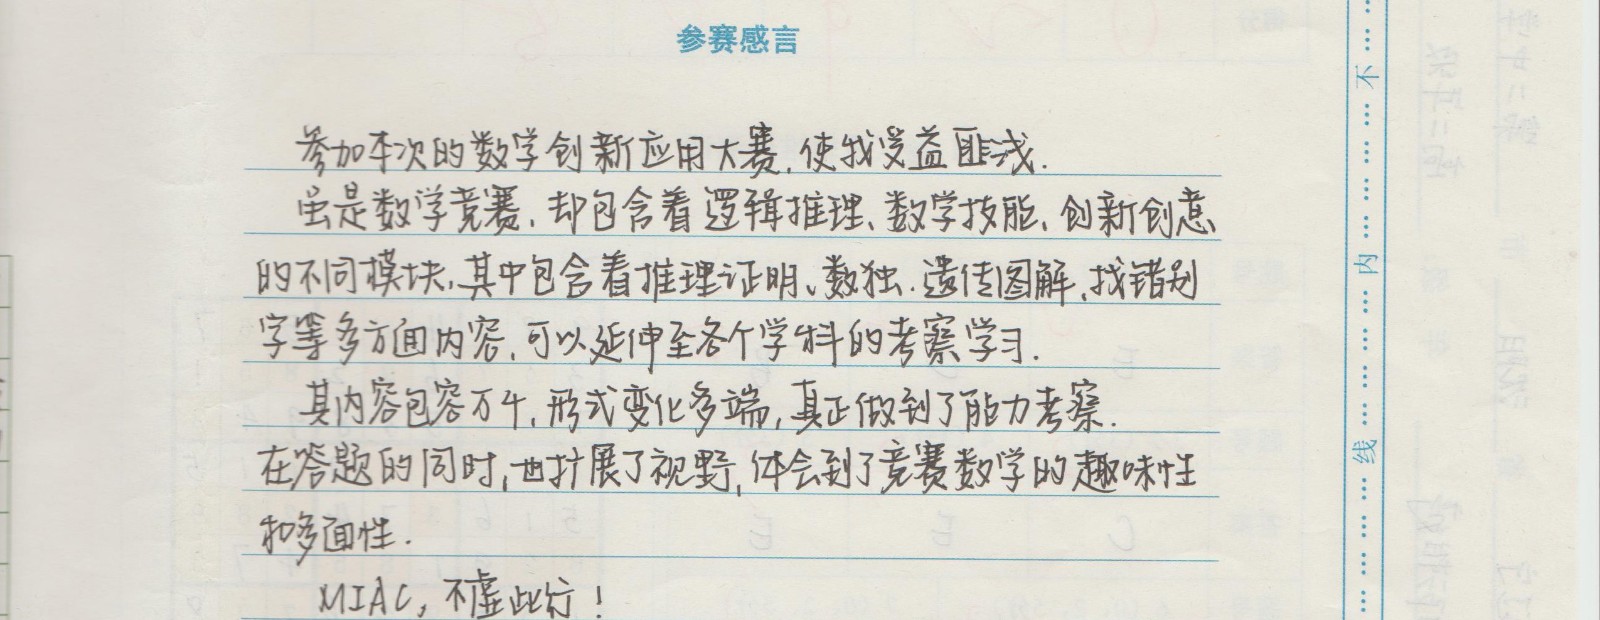 参赛感言
参加本次的数学创新应用大赛,使我受益匪浅.
虽是数学竞赛,却包含着逻辑推理、数学技能、创新创意
的不同模块,其中包含着推理证明、数独.遗传图解,找错别
字等多方面内容,可以延伸至各个学科的考察学习.
其内容包容万千,形式变化多端,真正做到了能力考察.
在答题的同时,也扩展了视野,体会到了竞赛数学的趣味性
和多面性.
MIAC,不虚此行!
不
内
线